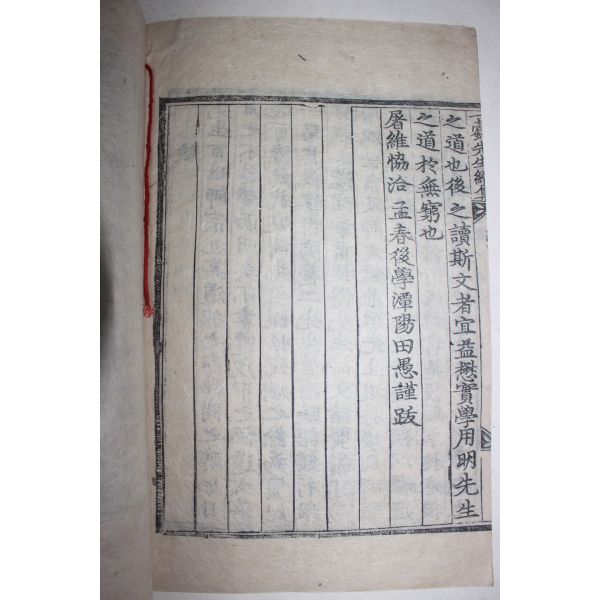 先生
之道也後之讀斯文者宜益懋實學用明先生
之道於無窮也
屠維恊洽孟春後學潭陽田愚謹跋